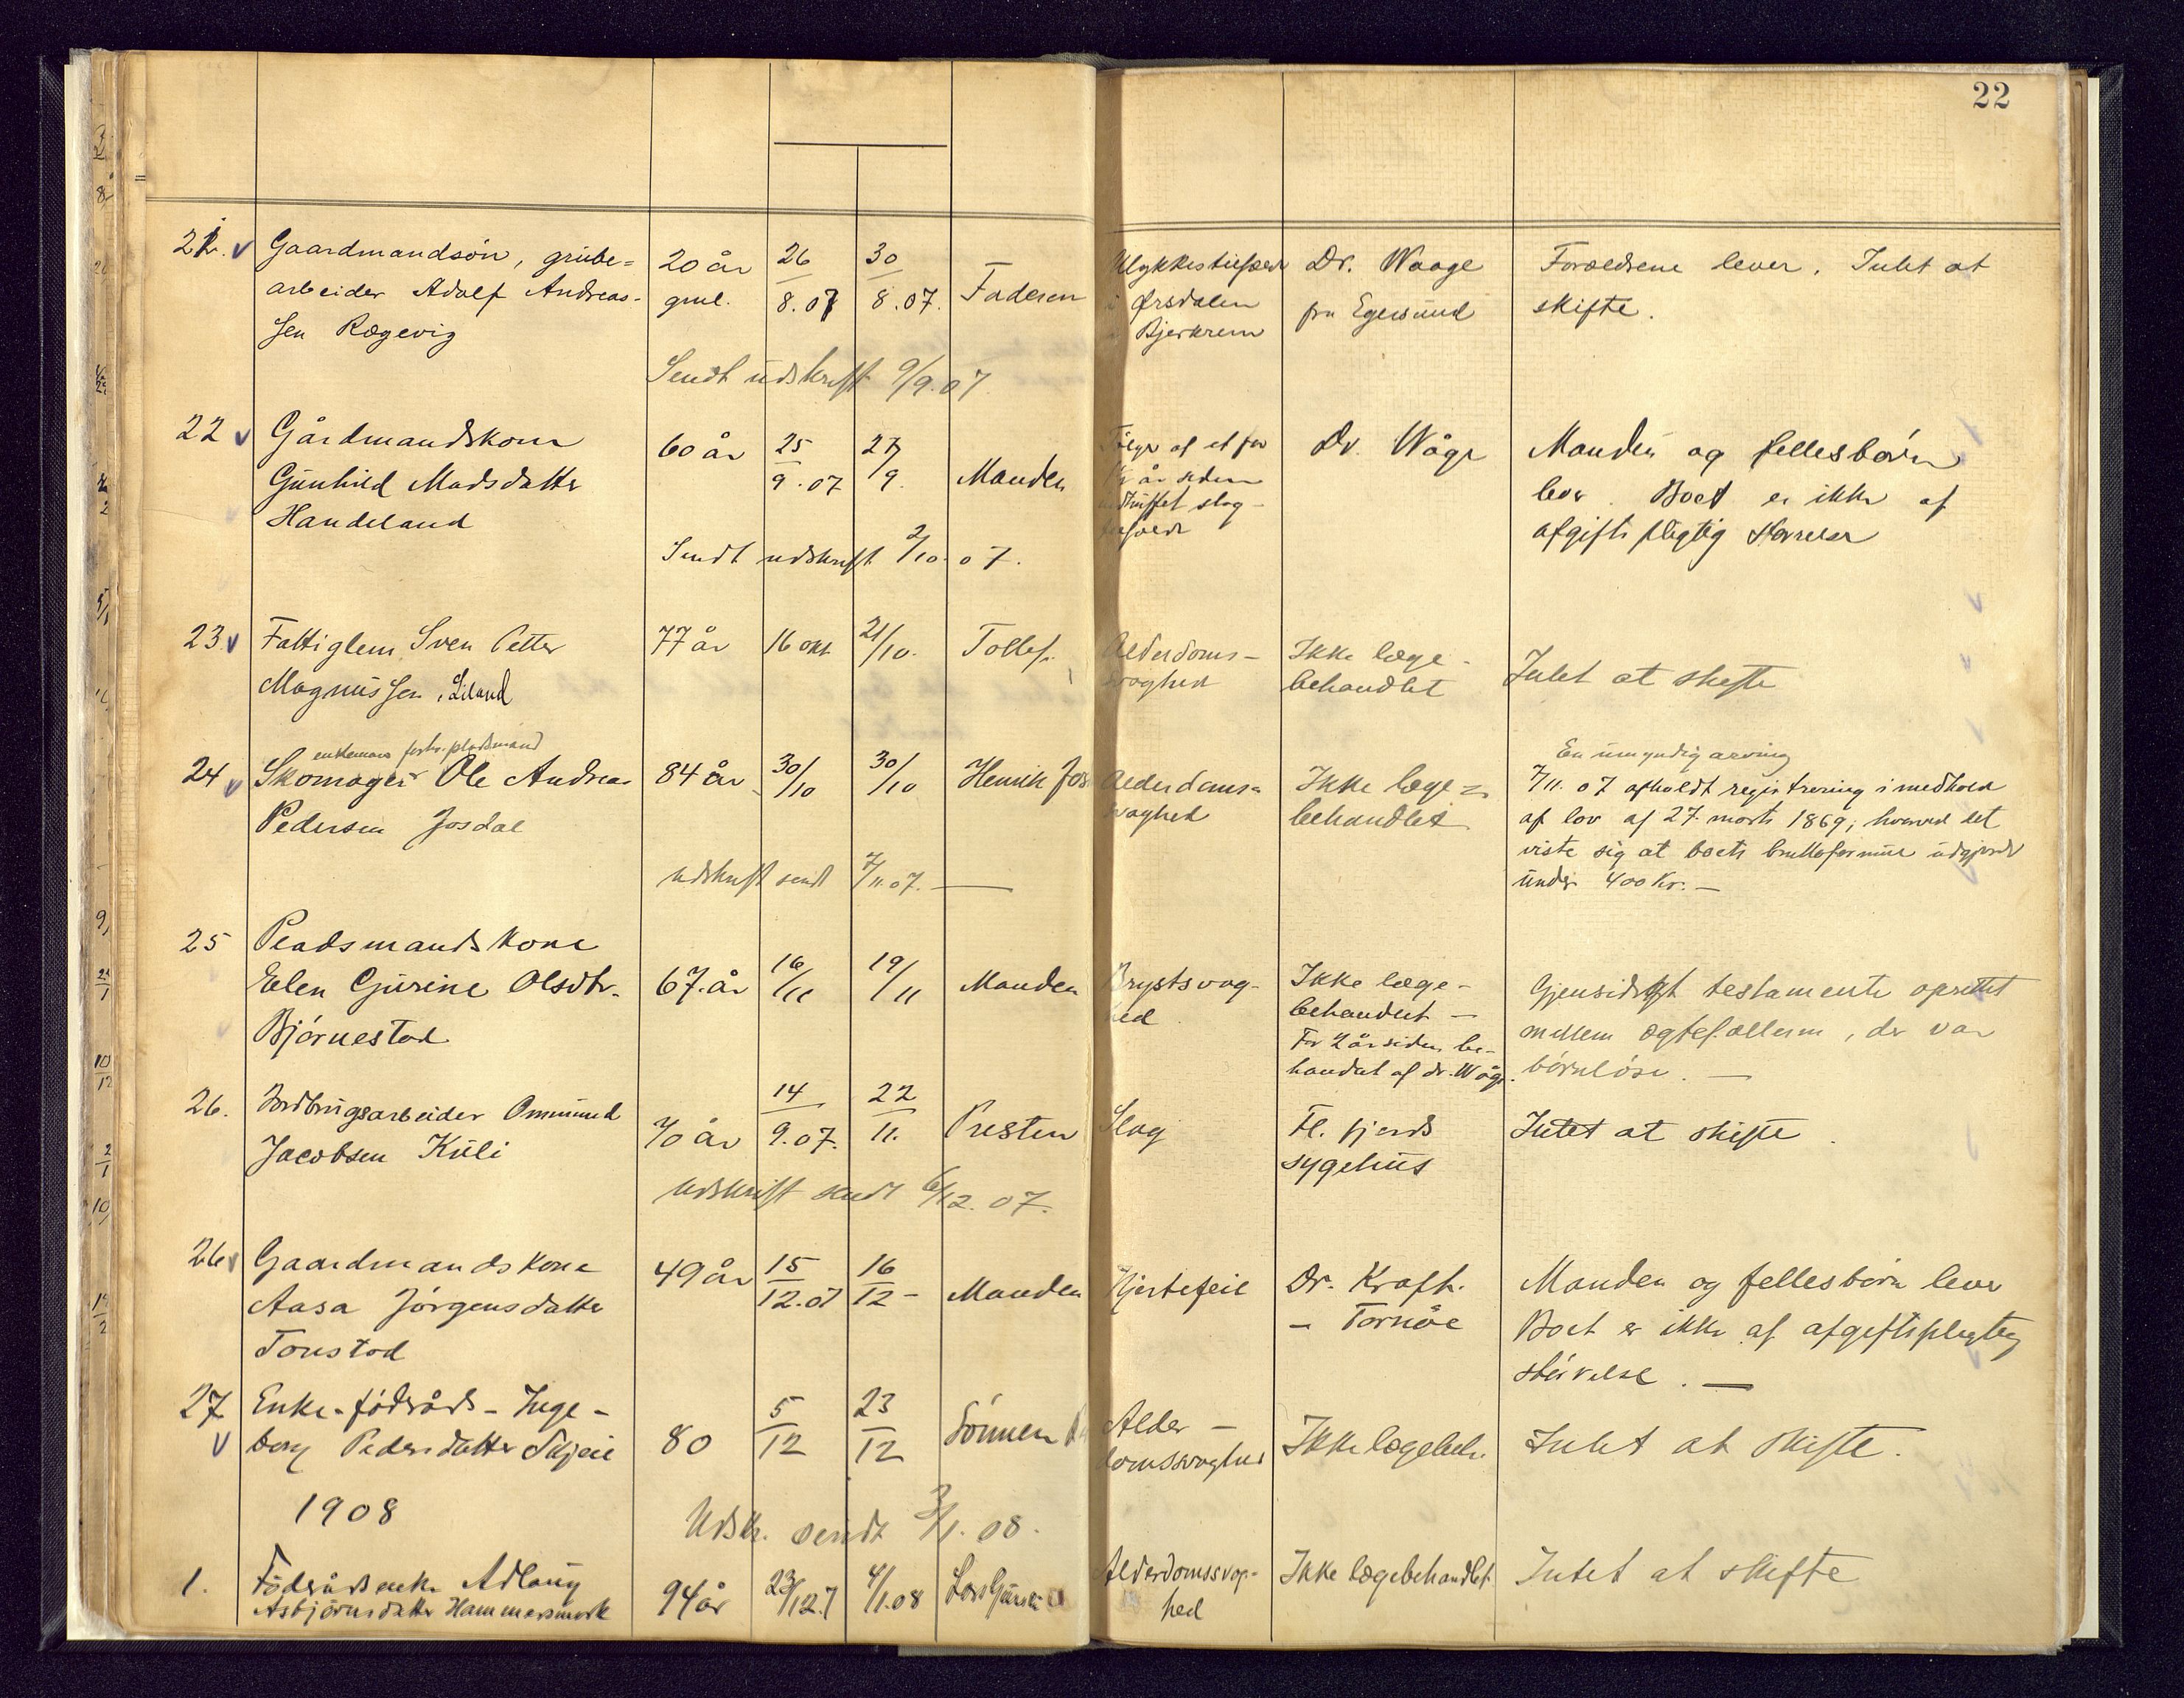 22
21. v Gaardmandsön, grube=
arbeider Adolf Andreas-
sen Rægevig
20 år
gml.
26/8.07
30/8.07.
Faderen
Ulykkestilfælde
i Ørsdalen
i Bjerkrem
Dr. Waage
fra Egersund
Forældrene lever. Intet at
skifte.
Sendt udskrift 9/9.07
22 v Gårdmandskone
Gunhild Madsdatter
Handeland
60 år
25/9.07
27/9.
Manden
Følge af et for
år siden
indtruffet slag-
tilfælde
Dr. Våge
Manden og fellesbörn
lever. Boet er ikke af
afgiftspligtig Størrelse
Sendt udskrift 2/10.07.
23 v Fattiglem Sven Petter
Magnussen, Liland
77 år
16 okt
21/10.
Tollef
Alderdoms-
svaghed
Ikke læge-
behandlet
Intet at skifte
enkemand forhv. pladsmand
24 v Skomager Ole Andreas
Pedersen Josdal
84 år
30/10
30/10
Henrik Jos
Alderdoms=
svaghed
Ikke læge=
behandlet
En umyndig arving
7/11.07 afholdt registrering i medhold
af lov af 27. marts 1869, hvorved det
viste sig at boets bruttoformue udgjorde
under 400 Kr. —
Udskrift sendt 7/11.07. —
25 Pladsmandskone
Elen Gurine Olsdtr.
Bjørnestad
67. år
16/11
19/11
Manden
Brystsvag-
hed
Ikke læge-
behandlet —
For 2 år siden be-
handlet af dr. Våge.
Gjensidigt testamente oprettet
mellem ægtefællerne, der var
børnløse. —
26. Jordbrugsarbeider Ommund
Jacobsen Kuli
70 år
14/9.07.
22/11.
Presten
Slag
Fl. fjords
sygehus
Intet at skifte.
Udskrift sendt 6/12.07.
26 v Gaardmandskone
Aasa Jørgensdatter
Tonstad
49 år
15/12.07
16/12 -
Manden
Hjertefeil
Dr. Kraft.
- Tornöe
Manden og fellesbörn lever
Boet er ikke af afgiftspligtig
störrelse. —
27 v Enke-födråds- Inge-
borg Pedersdatter Skjeie
80
5/12
23/12
Sönnen
Alder-
domssvaghed
Ikke lægebeh.
Intet at skifte.
1908
Udskr. sendt 3/1.08.
1. Föderådsenke Adlaug
Asbjörnsdatter Hammersmark
94 år
23/12.7
4/1.08
Lars
Alderdomssvag-
hed
Ikke lægebehandlet
Intet at skifte